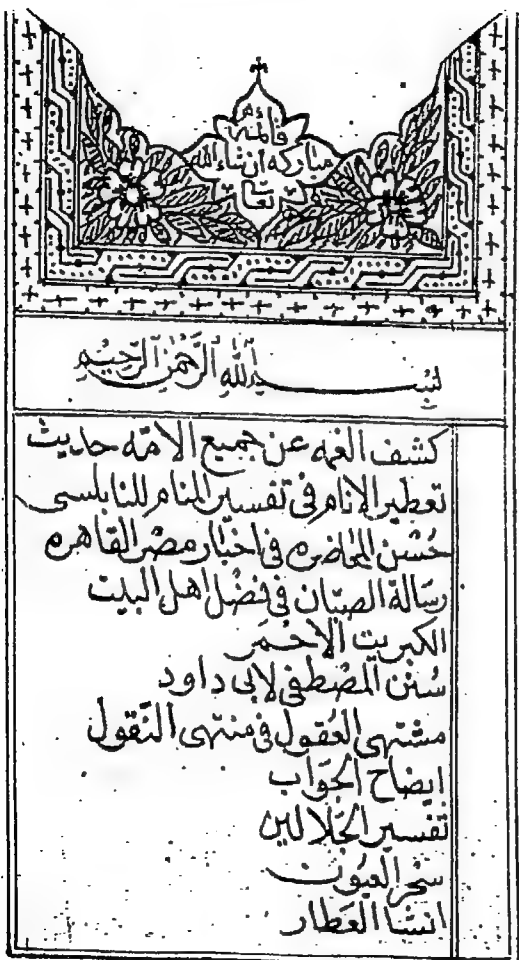 قائمة
مباركه أن شاء الله
تعا
بسم الله الرحمن الرحيم
كشف الغمه عن جميع الامّه حديث
تعطير الانام فى تفسير المنام للنابلسى
حسن المحاضره فى اخبار مصر القاهره
رسالة الصبّان فى فضل اهل البيت
الكبريت الاحمر
سنن المصطفى لابى داود
مشتهى العقول فى منتهى النّقول
ايضاح الجواب
تفسير الجلالين
سحر العيون
انشا العطار